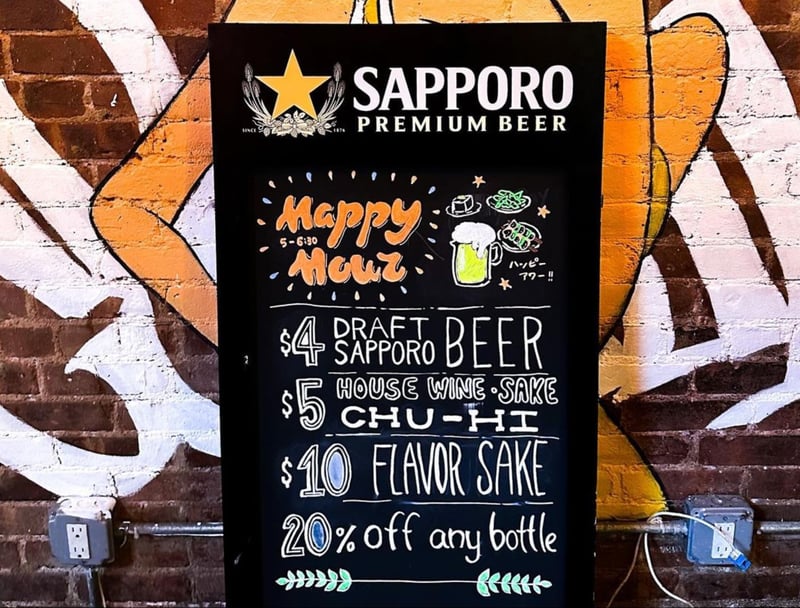 SAPPORO
SINCE 1876
PREMIUM BEER
Happy
5-6:30
Hour
ハッピー
アワー!!
$4 DRAFT SAPPORO BEER
$5 HOUSE WINE・SAKE
CHU-HI
$10 FLAVOR SAKE
20% off any bottle